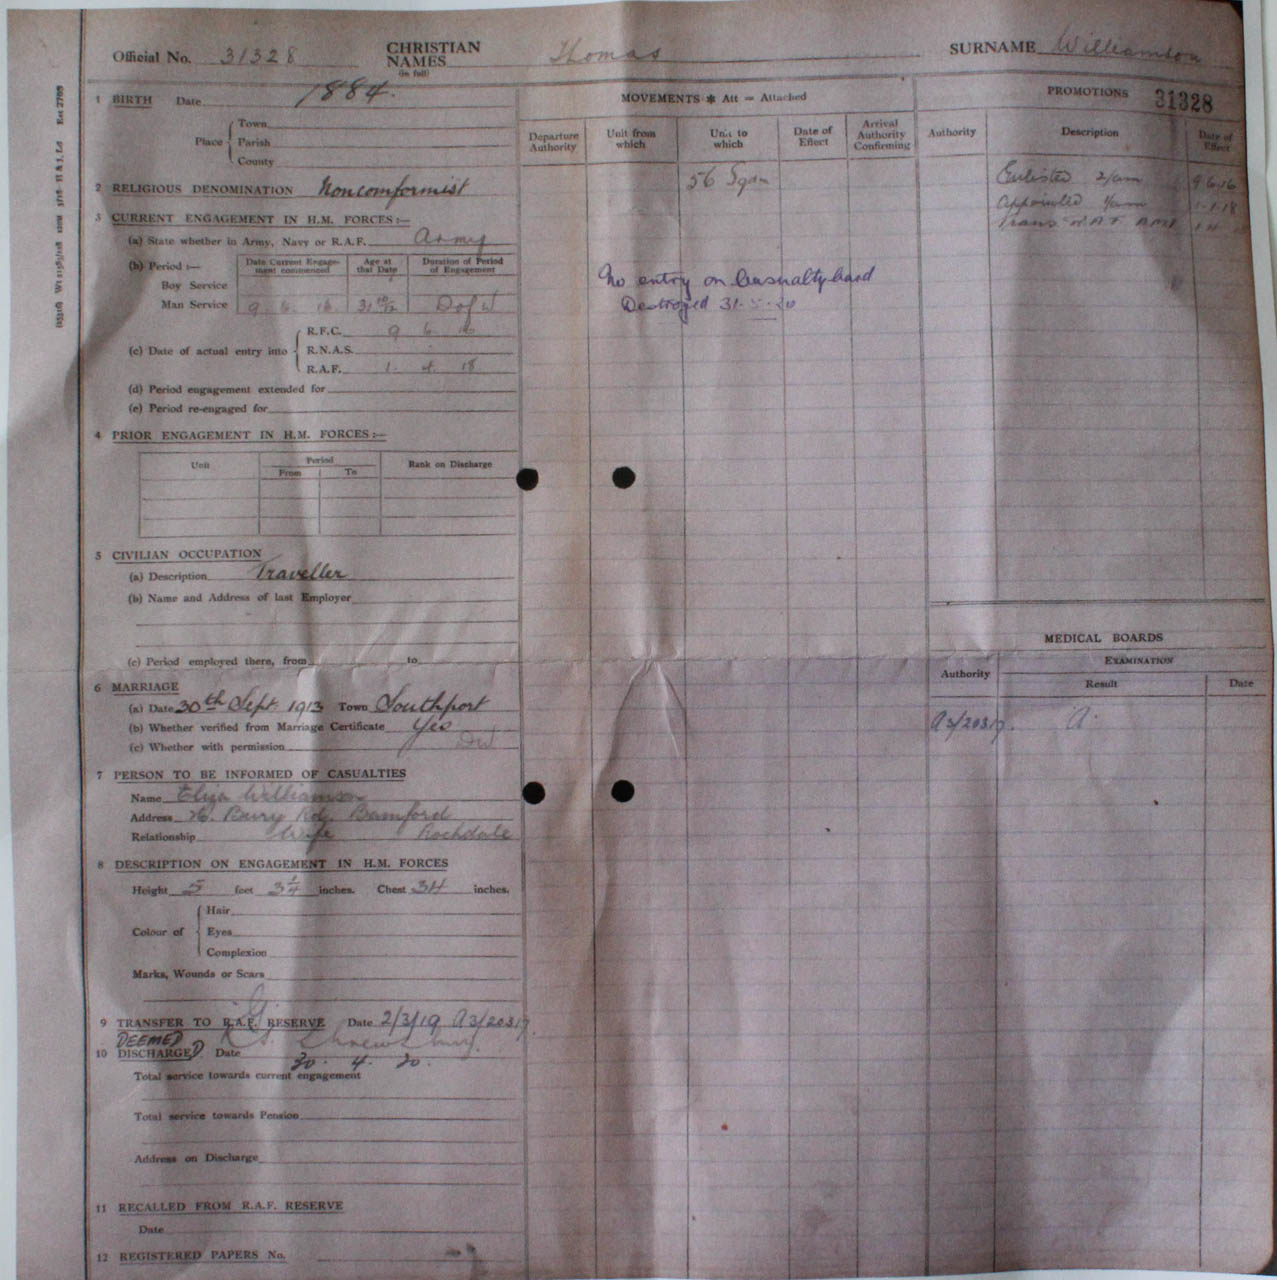 Official No. 31328 CHRISTIAN NAMES (in full) Thomas SURNAME Williamson
1 BIRTH Date 1884.
Place Town
Parish
County
2 RELIGIOUS DENOMINATION Noncomformist
3 CURRENT ENGAGEMENT IN H.M. FORCES:—
(a) State whether in Army, Navy or R.A.F. Army
(b) Period:— Date Current Engagement commenced Age at that Date Duration of Period of Engagement
Boy Service
Man Service 9. 6. 16 31 10/12 D of W
(c) Date of actual entry into R.F.C. 9 6 16
R.N.A.S.
R.A.F. 1. 4. 18
(d) Period engagement extended for
(e) Period re-engaged for
4 PRIOR ENGAGEMENT IN H.M. FORCES:—
Unit Period Rank on Discharge
From To
5 CIVILIAN OCCUPATION
(a) Description Traveller
(b) Name and Address of last Employer
(c) Period employed there, from to
6 MARRIAGE
(a) Date 30th Sept. 1913 Town Southport
(b) Whether verified from Marriage Certificate Yes
(c) Whether with permission
7 PERSON TO BE INFORMED OF CASUALTIES
Name Eliza Williamson
Address Bury Rd. Bamford
Relationship Wife Rochdale
8 DESCRIPTION ON ENGAGEMENT IN H.M. FORCES
Height 5 feet 3 1/4 inches. Chest 34 inches.
Colour of Hair
Eyes
Complexion
Marks, Wounds or Scars
9 TRANSFER TO R.A.F. RESERVE Date 2/3/19 A3/20317.
DEEMED Shrewsbury.
10 DISCHARGED Date 30. 4. 20.
Total service towards current engagement
Total service towards Pension
Address on Discharge
11 RECALLED FROM R.A.F. RESERVE
Date
12 REGISTERED PAPERS No.
MOVEMENTS * Att = Attached
Departure Authority Unit from which Unit to which Date of Effect Arrival Authority Confirming
56 Sqdn
No entry on Casualty Card
Destroyed 31
PROMOTIONS 31328
Authority Description Date of Effect
Enlisted 2/am 9 6.16
Appointed 1/am 1.1.18
Trans RAF
MEDICAL BOARDS
Authority EXAMINATION
Result Date
A3/20317. A.